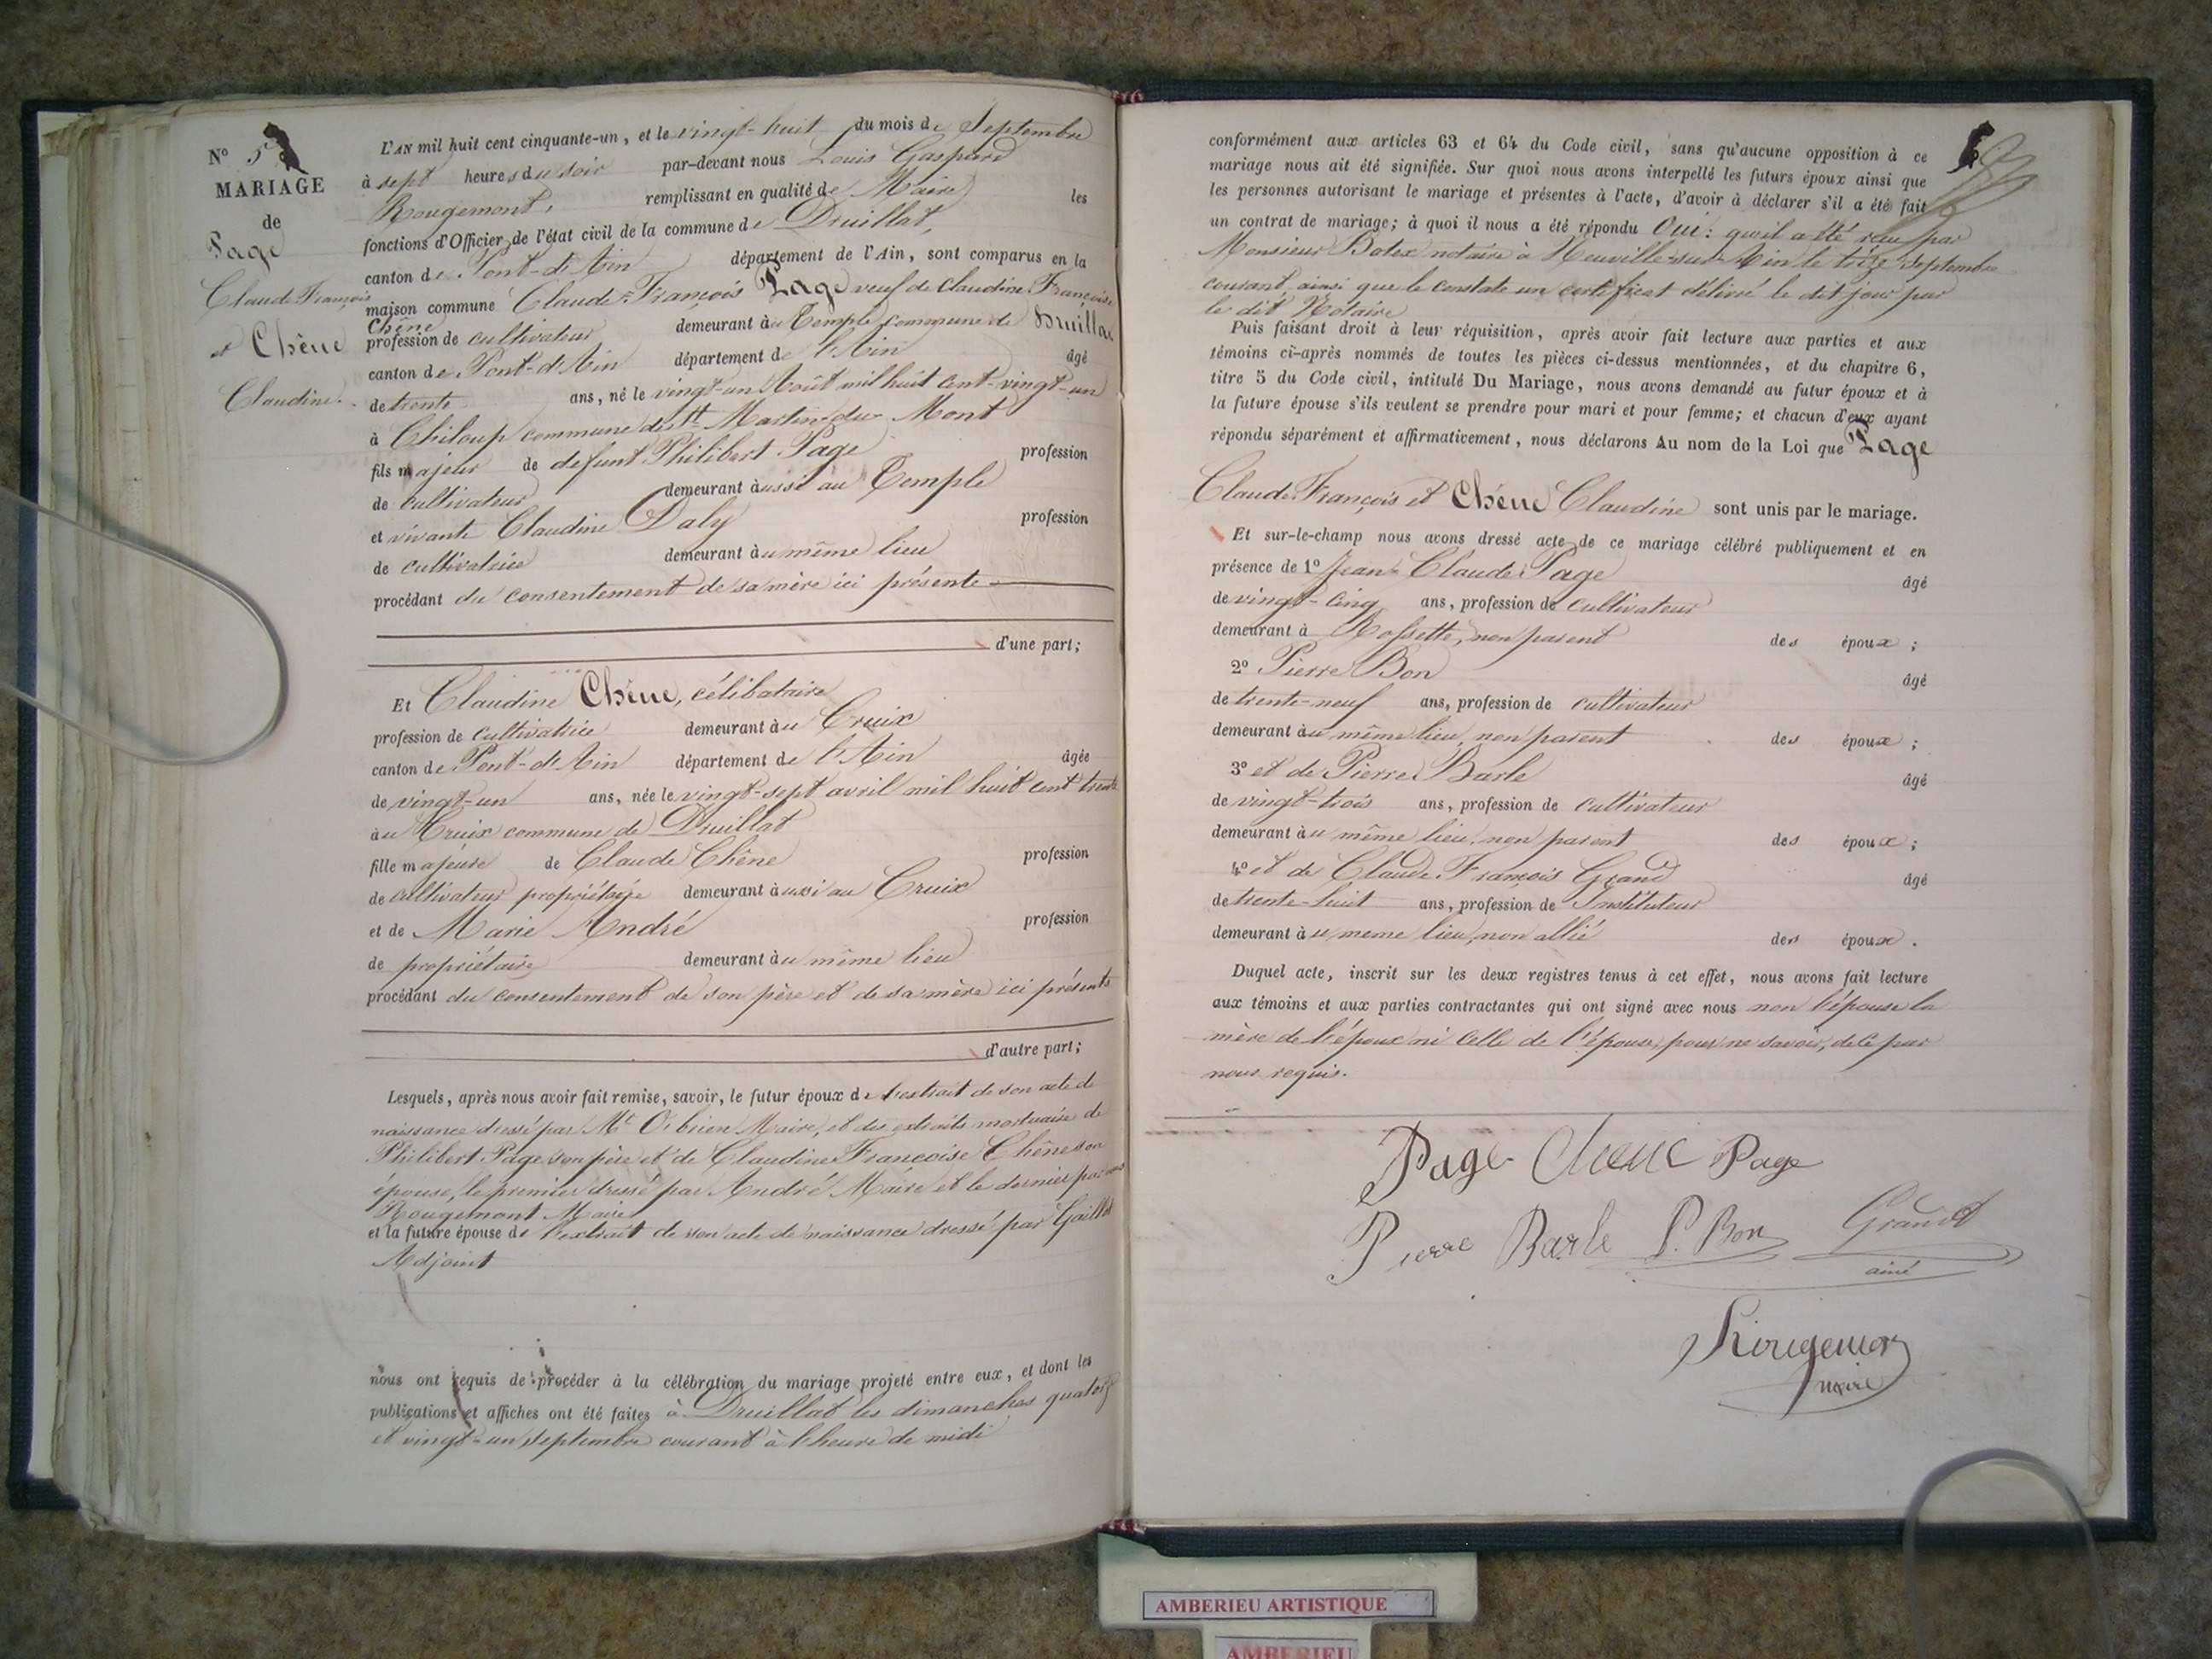 N° 5
MARIAGE
de
Page
Claude François
et Chêne
Claudine.
L'AN mil huit cent cinquante-un, et le vingt-huit du mois de Septembre
à sept heures du soir par-devant nous Louis Gaspard
Rougemont, remplissant en qualité de Maire les
fonctions d'Officier de l'état civil de la commune de Druillat,
canton de Pont-d'Ain département de l'Ain, sont comparus en la
maison commune Claude-François Page veuf de Claudine Françoise
Chêne
profession de cultivateur demeurant au Temple commune de Druillat
canton de Pont-d'Ain département de l'Ain âgé
de trente ans, né le vingt-un Août mil huit cent-vingt-un
à Chiloup commune de St Martin-du-Mont
fils majeur de defunt Philibert Page profession
de cultivateur demeurant aussi au Temple
et vivante Claudine Daly profession
de cultivatrice demeurant au même lieu
procédant du consentement de sa mère ici présente
d'une part;
Et Claudine Chêne, célibataire
profession de cultivatrice demeurant au Cruix
canton de Pont-d'Ain département de l'Ain âgée
de vingt-un ans, née le vingt-sept avril mil huit cent trente
au Cruix commune de Druillat
fille majeure de Claude Chêne profession
de cultivateur propriétaire demeurant aussi au Cruix
et de Marie André profession
de propriétaire demeurant au même lieu
procédant du consentement de son père et de sa mère ici présents
d'autre part;
Lesquels, après nous avoir fait remise, savoir, le futur époux de l'extrait de son acte de
naissance dressé par Mr Orbrien Maire, et des extraits mortuaire de
Philibert Page son père et de Claudine Françoise Chêne son
épouse, le premier dressé par André Maire et le dernier par nous
Rougemont Maire
et la future épouse de l'extrait de son acte de naissance dressé par Gaillot
Adjoint
nous ont requis de procéder à la célébration du mariage projeté entre eux, et dont les
publications et affiches ont été faites à Druillat les dimanches quatorze
et vingt-un septembre courant à l'heure de midi
conformément aux articles 63 et 64 du Code civil, sans qu'aucune opposition à ce
mariage nous ait été signifiée. Sur quoi nous avons interpellé les futurs époux ainsi que
les personnes autorisant le mariage et présentes à l'acte, d'avoir à déclarer s'il a été fait
un contrat de mariage; à quoi il nous a été répondu Oui: qu'il a été reçu par
Monsieur Botex notaire à Neuville-sur-Ain le treize septembre
courant, ainsi que le constate un certificat délivré le dit jour par
le dit Notaire
Puis faisant droit à leur réquisition, après avoir fait lecture aux parties et aux
témoins ci-après nommés de toutes les pièces ci-dessus mentionnées, et du chapitre 6,
titre 5 du Code civil, intitulé Du Mariage, nous avons demandé au futur époux et à
la future épouse s'ils veulent se prendre pour mari et pour femme; et chacun d'eux ayant
répondu séparément et affirmativement, nous déclarons Au nom de la Loi que Page
Claude-François et Chêne Claudine sont unis par le mariage.
Et sur-le-champ nous avons dressé acte de ce mariage célébré publiquement et en
présence de 1° Jean-Claude Page âgé
de vingt-cinq ans, profession de cultivateur
demeurant à Rossette, non parent des époux;
2° Pierre Bon âgé
de trente-neuf ans, profession de cultivateur
demeurant au même lieu, non parent des époux;
3° et de Pierre Barle âgé
de vingt-trois ans, profession de cultivateur
demeurant au même lieu, non parent des époux;
4° et de Claude François Grand âgé
de trente-huit ans, profession de Instituteur
demeurant au meme lieu, non allié des époux.
Duquel acte, inscrit sur les deux registres tenus à cet effet, nous avons fait lecture
aux témoins et aux parties contractantes qui ont signé avec nous non l'épouse la
mère de l'époux ni celle de l'épouse, pour ne savoir, de ce par
nous requis.
Page Chene Page
Pierre Barle P. Bon Grand
ainé
Rougemont
maire
AMBERIEU ARTISTIQUE
AMBERIEU